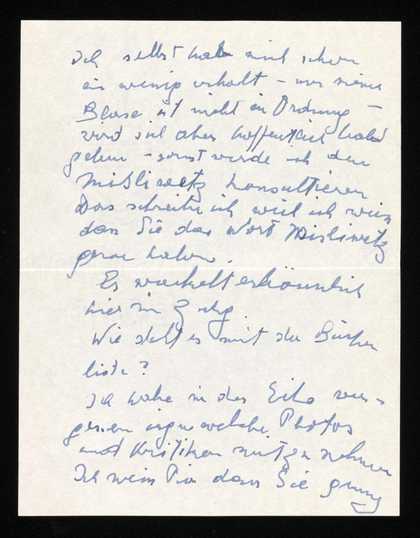 Ich selbst habe mich schon
ein wenig erholt – nur meine
Blase ist nicht in Ordnung –
wird sich aber hoffentlich bald
geben – sonst werde ich den
Misliwetz konsultieren
Das schreibe ich weil ich weiss
dass Sie das Wort Misliwetz
gerne haben.
Es wackelt erstaunlich
hier im Zug.
Wie steht es mit der Bücher
liste?
Ich habe in der Eile ver-
gessen irgendwelche Photos
und Kritiken mitzunehmen
Ich weiss dass Sie genug